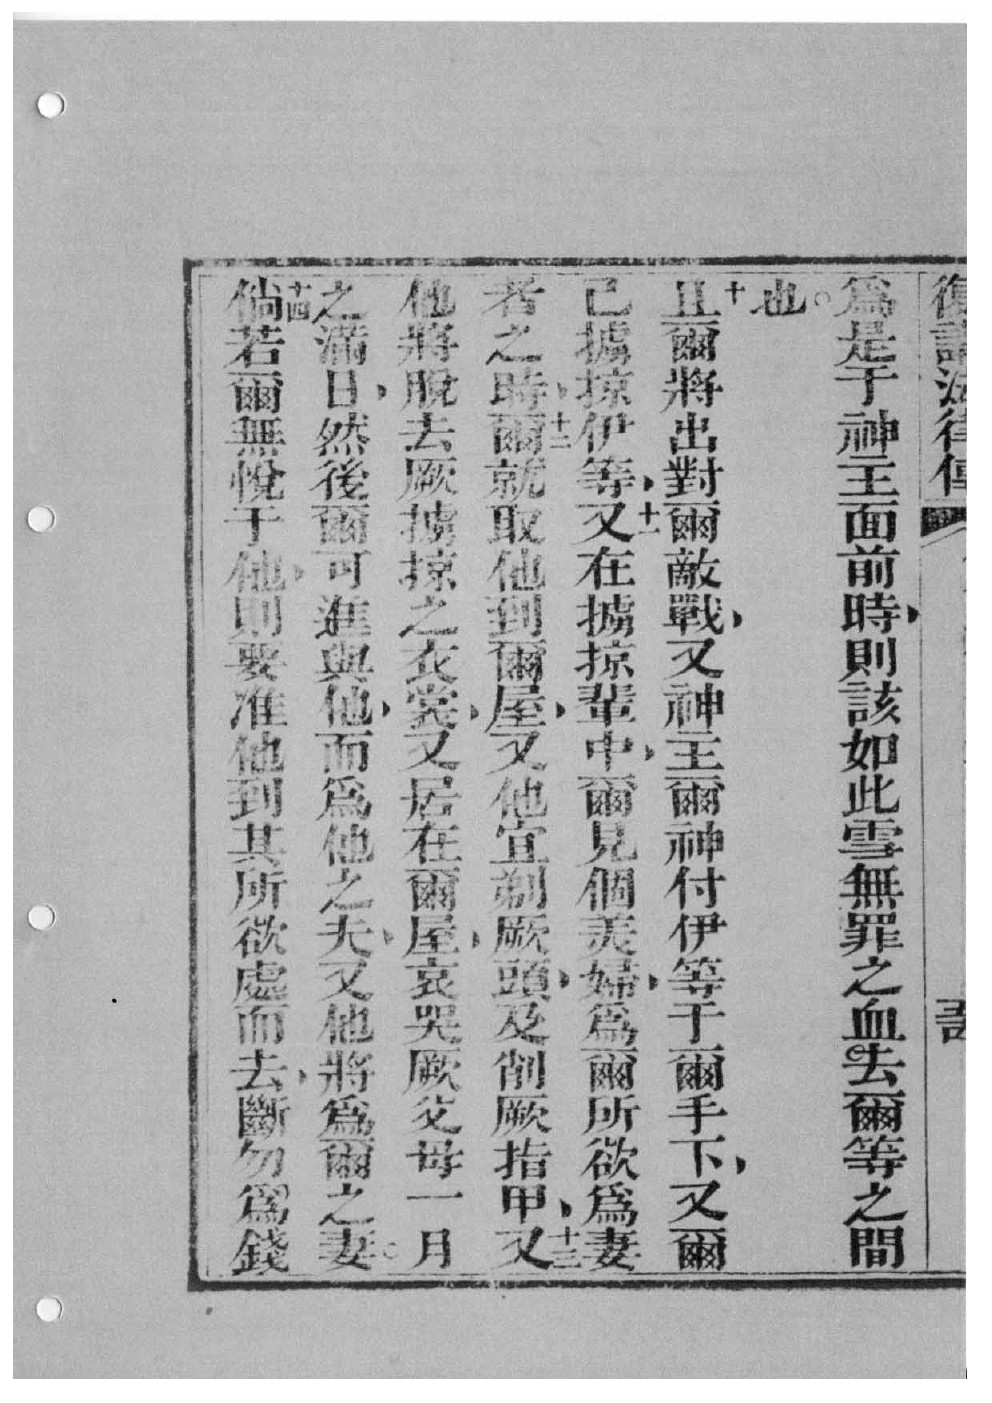 復講法律傳
爲是于神王面前時則該如此雪無罪之血去爾等之間
也。
十且爾將出對爾敵戰又神王爾神付伊等于爾手下又爾
已擄掠伊等十一又在擄掠輩中爾見個美婦爲爾所欲爲妻
者之時十二爾就取他到爾屋又他宜剃厥頭及削厥指甲十三又
他將脫去厥擄掠之衣裳又居在爾屋哀哭厥父母一月
之滿日然後爾可進與他而爲他之夫又他將爲爾之妻。
十四倘若爾無悅于他則要准他到其所欲處而去斷勿爲錢